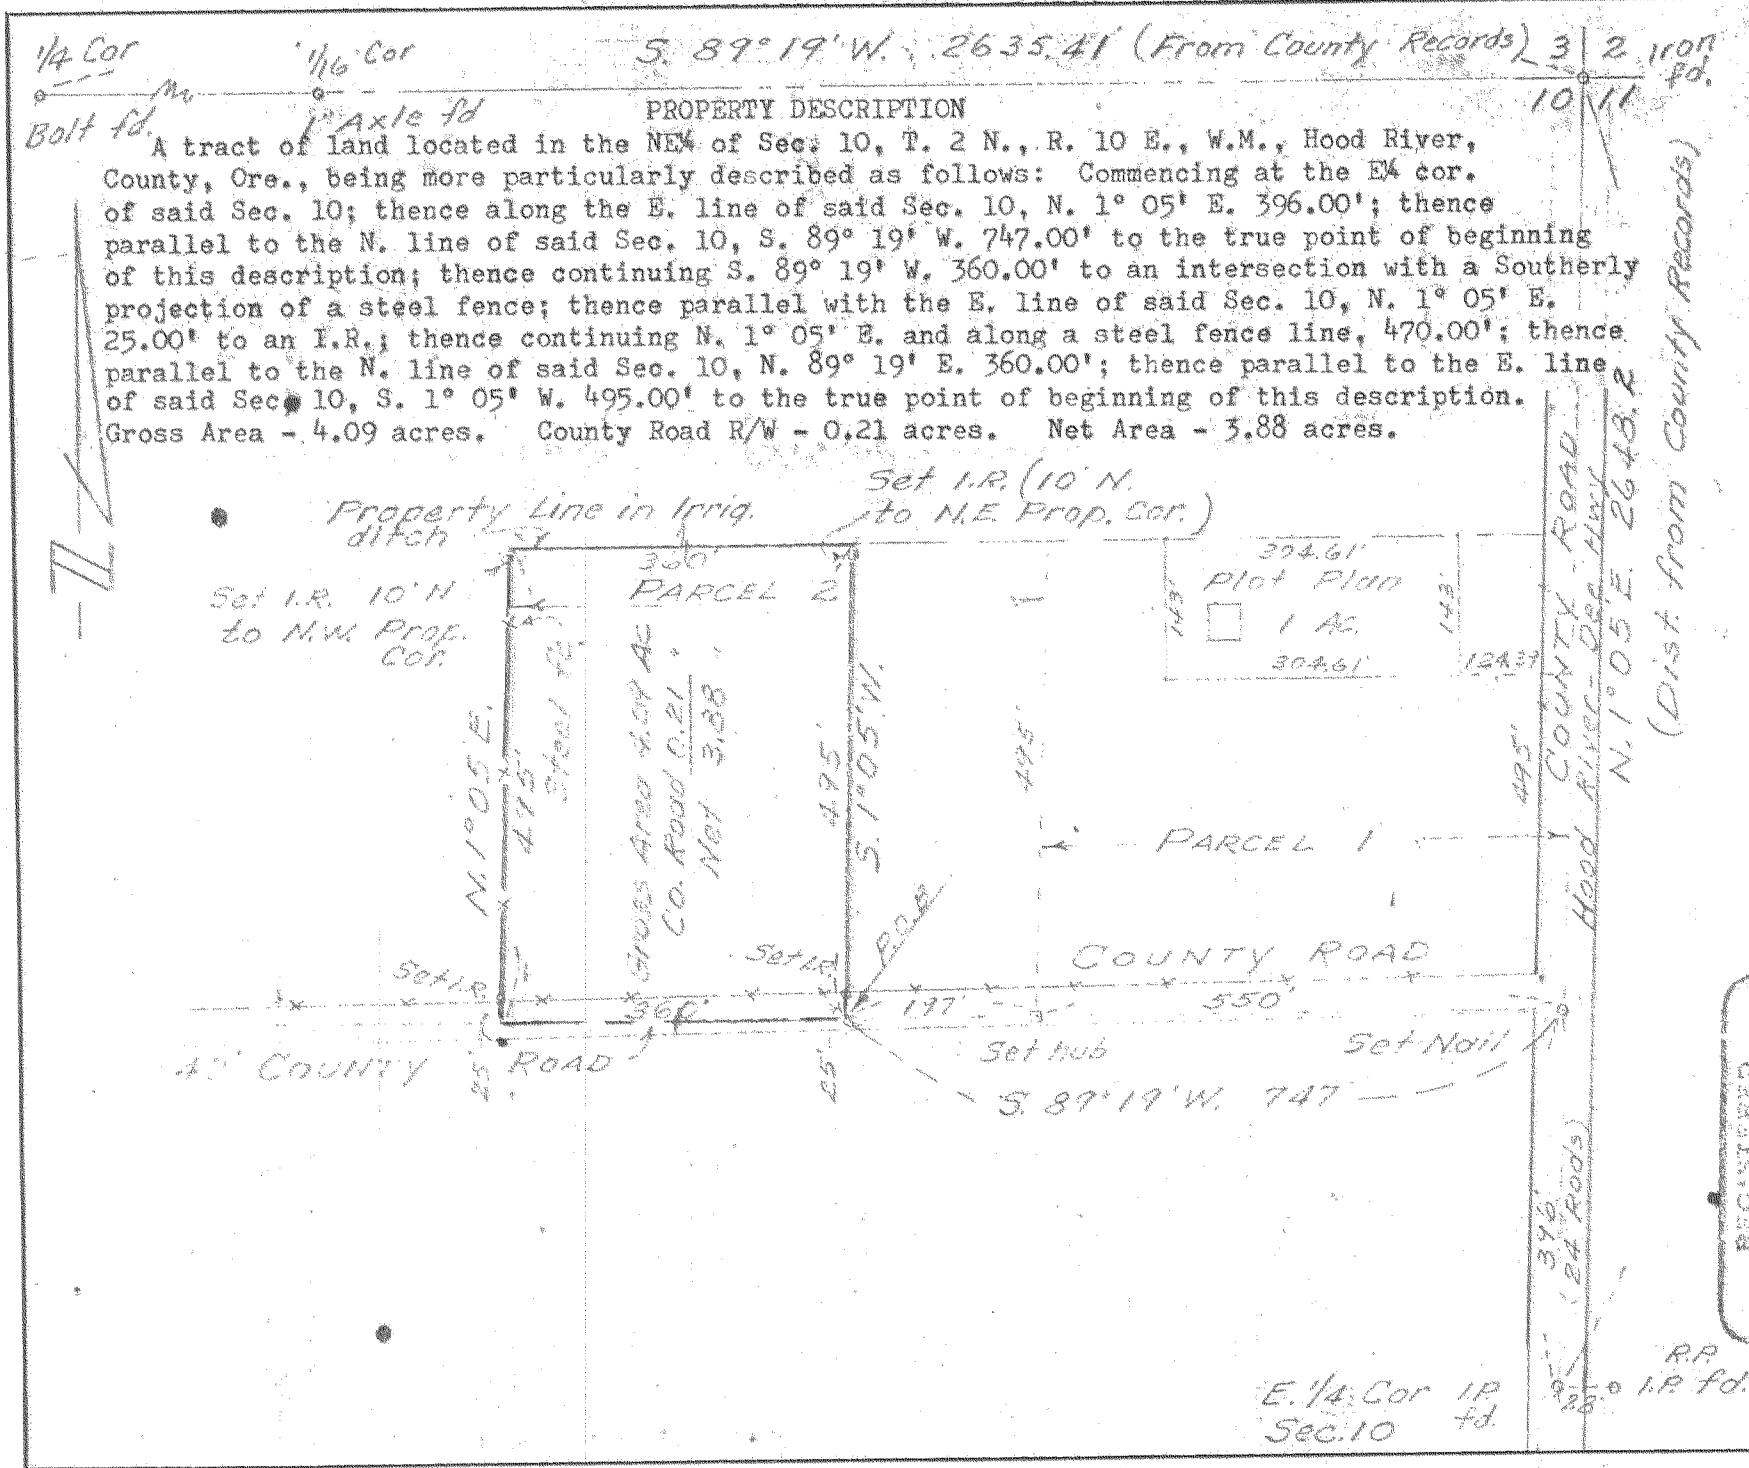 1/4 Cor
1/16 Cor
S. 89° 19' W. 2635.41' (From County Records)
3 2 Iron fd.
10 11
Bolt fd.
1" Axle fd
PROPERTY DESCRIPTION
A tract of land located in the NE¼ of Sec. 10, T. 2 N., R. 10 E., W.M., Hood River,
County, Ore., being more particularly described as follows: Commencing at the E¼ cor.
of said Sec. 10; thence along the E. line of said Sec. 10, N. 1° 05' E. 396.00'; thence
parallel to the N. line of said Sec. 10, S. 89° 19' W. 747.00' to the true point of beginning
of this description; thence continuing S. 89° 19' W. 360.00' to an intersection with a Southerly
projection of a steel fence; thence parallel with the E. line of said Sec. 10, N. 1° 05' E.
25.00' to an I.R.; thence continuing N. 1° 05' E. and along a steel fence line, 470.00'; thence
parallel to the N. line of said Sec. 10, N. 89° 19' E. 360.00'; thence parallel to the E. line
of said Sec. 10, S. 1° 05' W. 495.00' to the true point of beginning of this description.
Gross Area - 4.09 acres. County Road R/W - 0.21 acres. Net Area - 3.88 acres.
N
Set I.R. (10' N.
to N.E. Prop. Cor.)
Property Line in Irrig.
ditch
360'
PARCEL 2
Set I.R. 10' N
to N.W. Prop.
Cor.
304.61'
Plot Plan
143'
1 Ac.
143'
304.61'
124.39
N. 1° 05' E.
495'
Steel fc.
Gross Area 4.09 Ac
Co. Road 0.21 "
Net 3.88 "
495'
S. 1° 05' W.
495'
495'
COUNTY ROAD
Hood River - Dee Hwy
N. 1° 05' E. 2648.2
(Dist. from County Records)
PARCEL 1
P.O.B.
COUNTY ROAD
Set I.R.
Set I.R.
360'
197'
550'
COUNTY ROAD
25'
25'
Set hub
Set Nail
S. 89° 19' W. 747
396'
(24 Rods)
E. 1/4 Cor I.P.
Sec. 10 fd.
R.P.
I.P. fd.